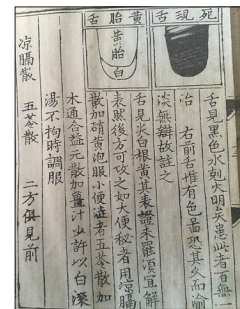 死現舌
舌見黑色水剋火明矣患此者百無一
治　右前舌惟有色圖恐其久而渝
淡無辯故註之
黃胎舌
黃胎
白
舌見尖白根黃其表證未罷須宜解
表然後方可攻之如大便秘者用涼膈
散加硝黃泡服小便澁者五苓散加
木通合益元散加薑汁少許以白滾
湯不拘時調服
涼膈散　五苓散　二方俱見前